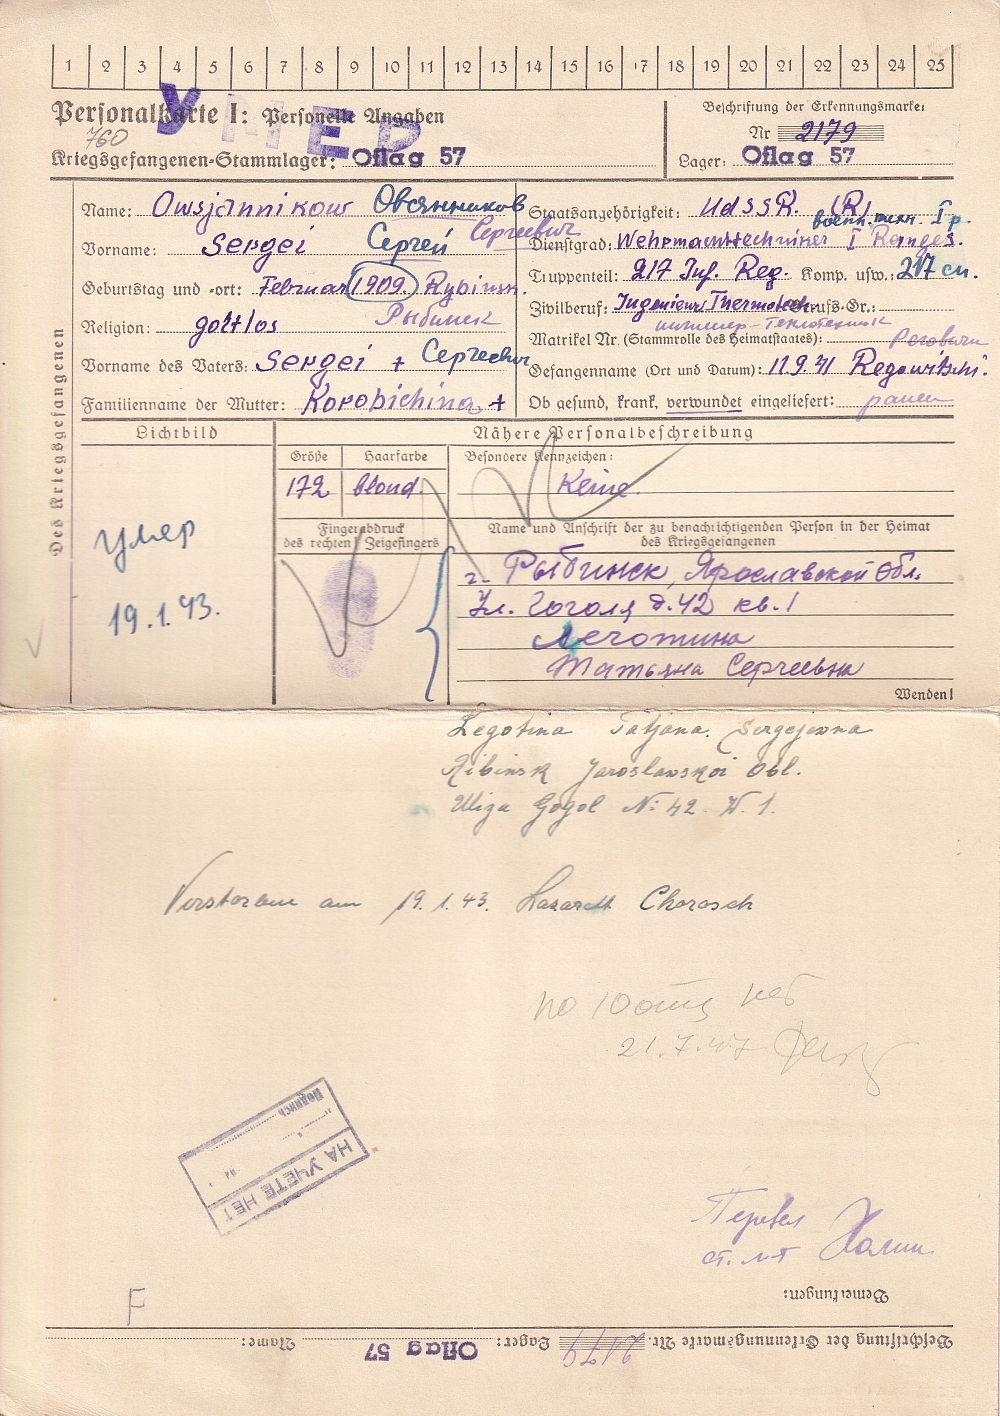 1 2 3 4 5 6 7 8 9 10 11 12 13 14 15 16 17 18 19 20 21 22 23 24 25
Personalkarte I: Personelle Angaben
УМЕР
760
Kriegsgefangenen-Stammlager: Oflag 57
Beschriftung der Erkennungsmarke:
Nr 2179
Lager: Oflag 57
Des Kriegsgefangenen
Name: Owsjannikow Овсянников
Vorname: Sergei Сергей Сергеевич
Geburtstag und -ort: Februar 1909. Rybinsk.
Religion: gottlos Рыбинск
Vorname des Vaters: Sergei + Сергеевич
Familienname der Mutter: Korobichina +
Staatsangehörigkeit: UdSSR. (R)
воен. техн. I р.
Dienstgrad: Wehrmachttechniker I Ranges.
Truppenteil: 217 Inf. Reg. Komp. usw.: 217 сп.
Zivilberuf: Ingenieur Thermotech Berufs-Gr.:
инженер-теплотехник
Matrikel Nr. (Stammrolle des Heimatstaates):
Gefangenname (Ort und Datum): 11.9.41 Regowitschi.
Ob gesund, krank, verwundet eingeliefert: ранен
Lichtbild
умер
19.1.43.
Nähere Personalbeschreibung
Größe Haarfarbe Besondere Kennzeichen:
172 blond. Keine.
Fingerabdruck
des rechten Zeigefingers
Name und Anschrift der zu benachrichtigenden Person in der Heimat
des Kriegsgefangenen
г. Рыбинск, Ярославской обл.
Ул. Гоголя д. 42 кв. 1
Леготина
Татьяна Сергеевна
Wenden!
Legotina Tatjana Sergejewna
Ribinsk Jaroslawskoi Obl.
Uliza Gogol N: 42 W. 1.
Verstorben am 19.1.43. Lazarett Chorosch
нет
21.7.47
НА УЧЕТЕ НЕТ
Подпись
Перевел
ст. л-т
F
Bemerkungen:
Beschriftung der Erkennungsmarke Nr. 2179 Lager: Oflag 57 Name: